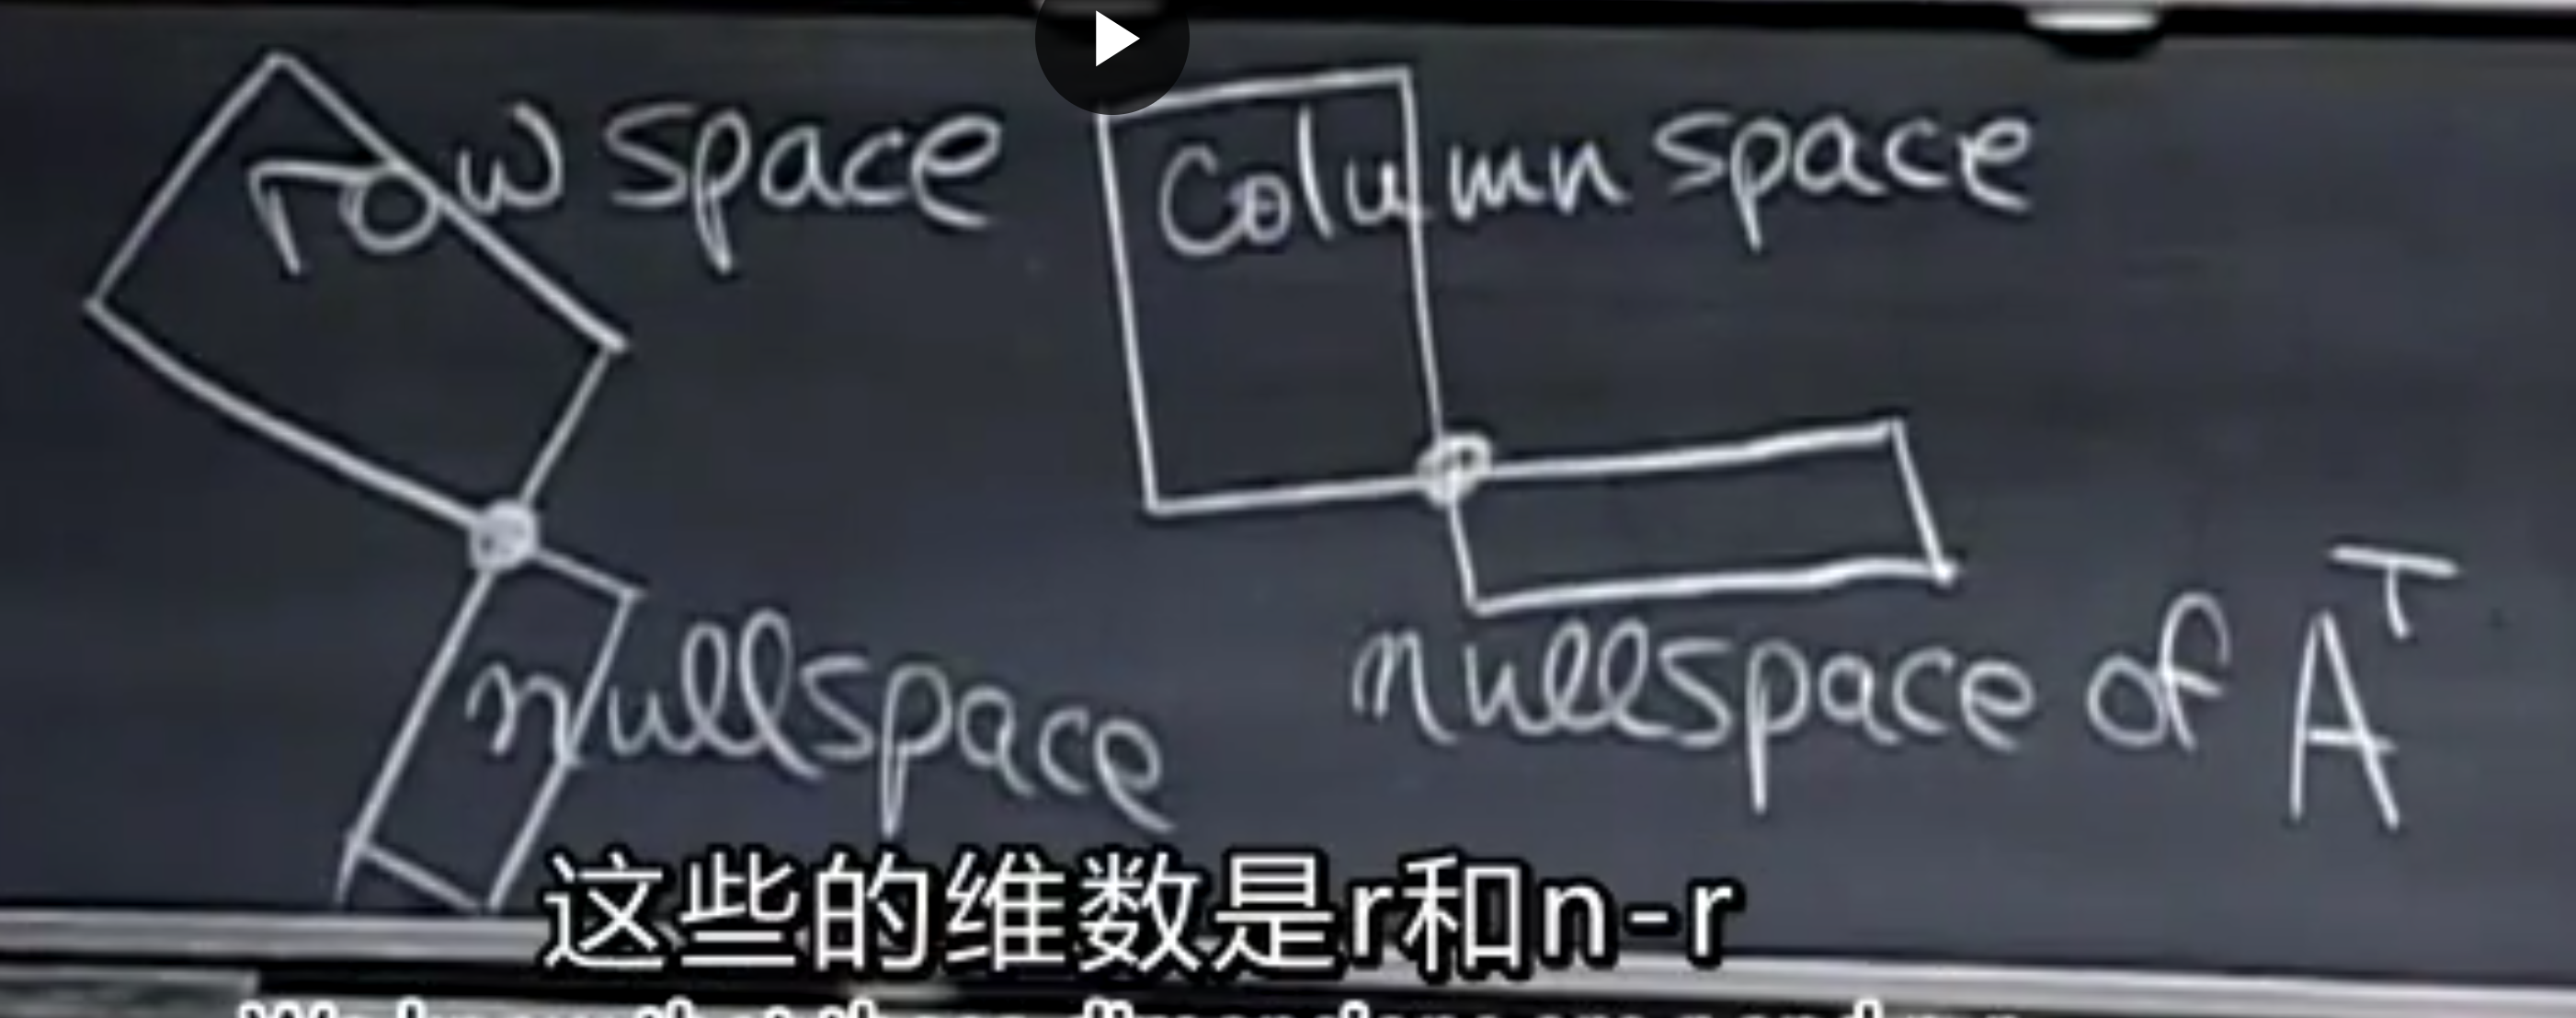 row space
column space
nullspace
nullspace of Aᵀ
这些的维数是r和n-r